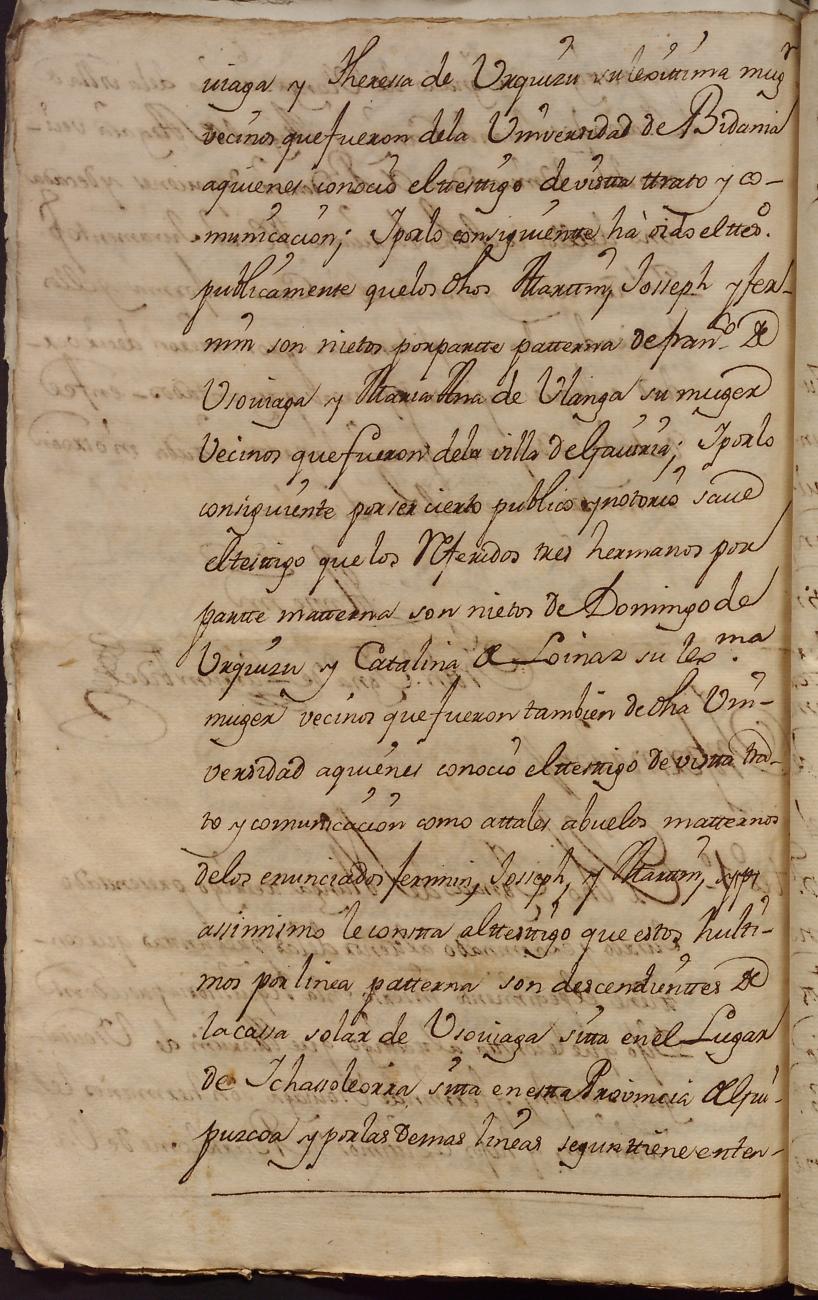 uiaga y Theressa de Urquizu su lexittima mugr
vecinos que fueron dela Universidad de Bidania
aquienes conocio elttesttigo de vistta ttrato y co-
municacion; Iporlo consiguientte hà oido eltteso.
publicamente quelos dhos Marttin, Josseph y fer-
min son nietos porpartte patterna de franco. de
Usouiaga y Maria Ana de Ulanga su muger
Vecinos que fueron dela villa de Gauiria; Iporlo
consiguiente porser cierto publico ynotorio saue
eltesttigo que los Referidos tres hermanos por
partte matterna son nietos de Domingo de
Urquizu y Catalina de Loinaz su lexma.
muger vecinos que fueron tambien de dha Uni-
versidad aquienes conocio elttesttigo de vistta tra-
to y comunicacion como attales abuelos matternos
delos enunciados fermin, Josseph, y Marttin, y
assimismo le constta alttesttigo que estos hulti-
mos por linea patterna son descendienttes de
la cassa solar de Usouiaga sitta en el Lugar
de Ichassoleorra sitta en estta Provincia de Gui-
puzcoa y porlas demas lineas segun ttiene enten-